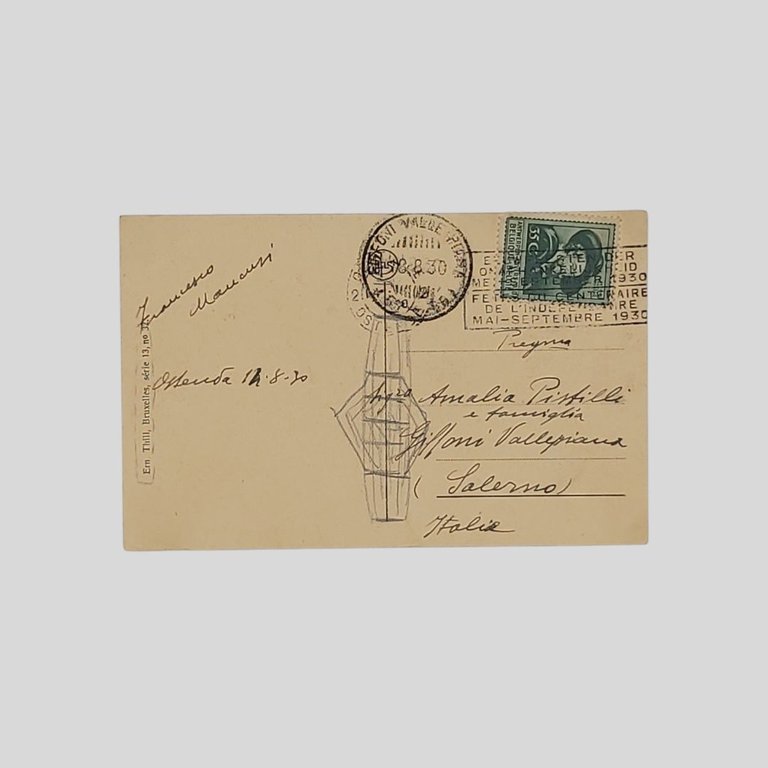 Francesco
Mancusi
Ostenda 12-8-30
Ern Thill, Bruxelles, série 13, no
GIFFONI VALLE PIANA
8.8.30
35 C
BELGIQUE
1930
FETES DU CENTENAIRE
DE L'INDEPENDANCE
MAI-SEPTEMBRE 1930
Amalia Pistilli
e famiglia
Giffoni Vallepiana
(Salerno)
Italia